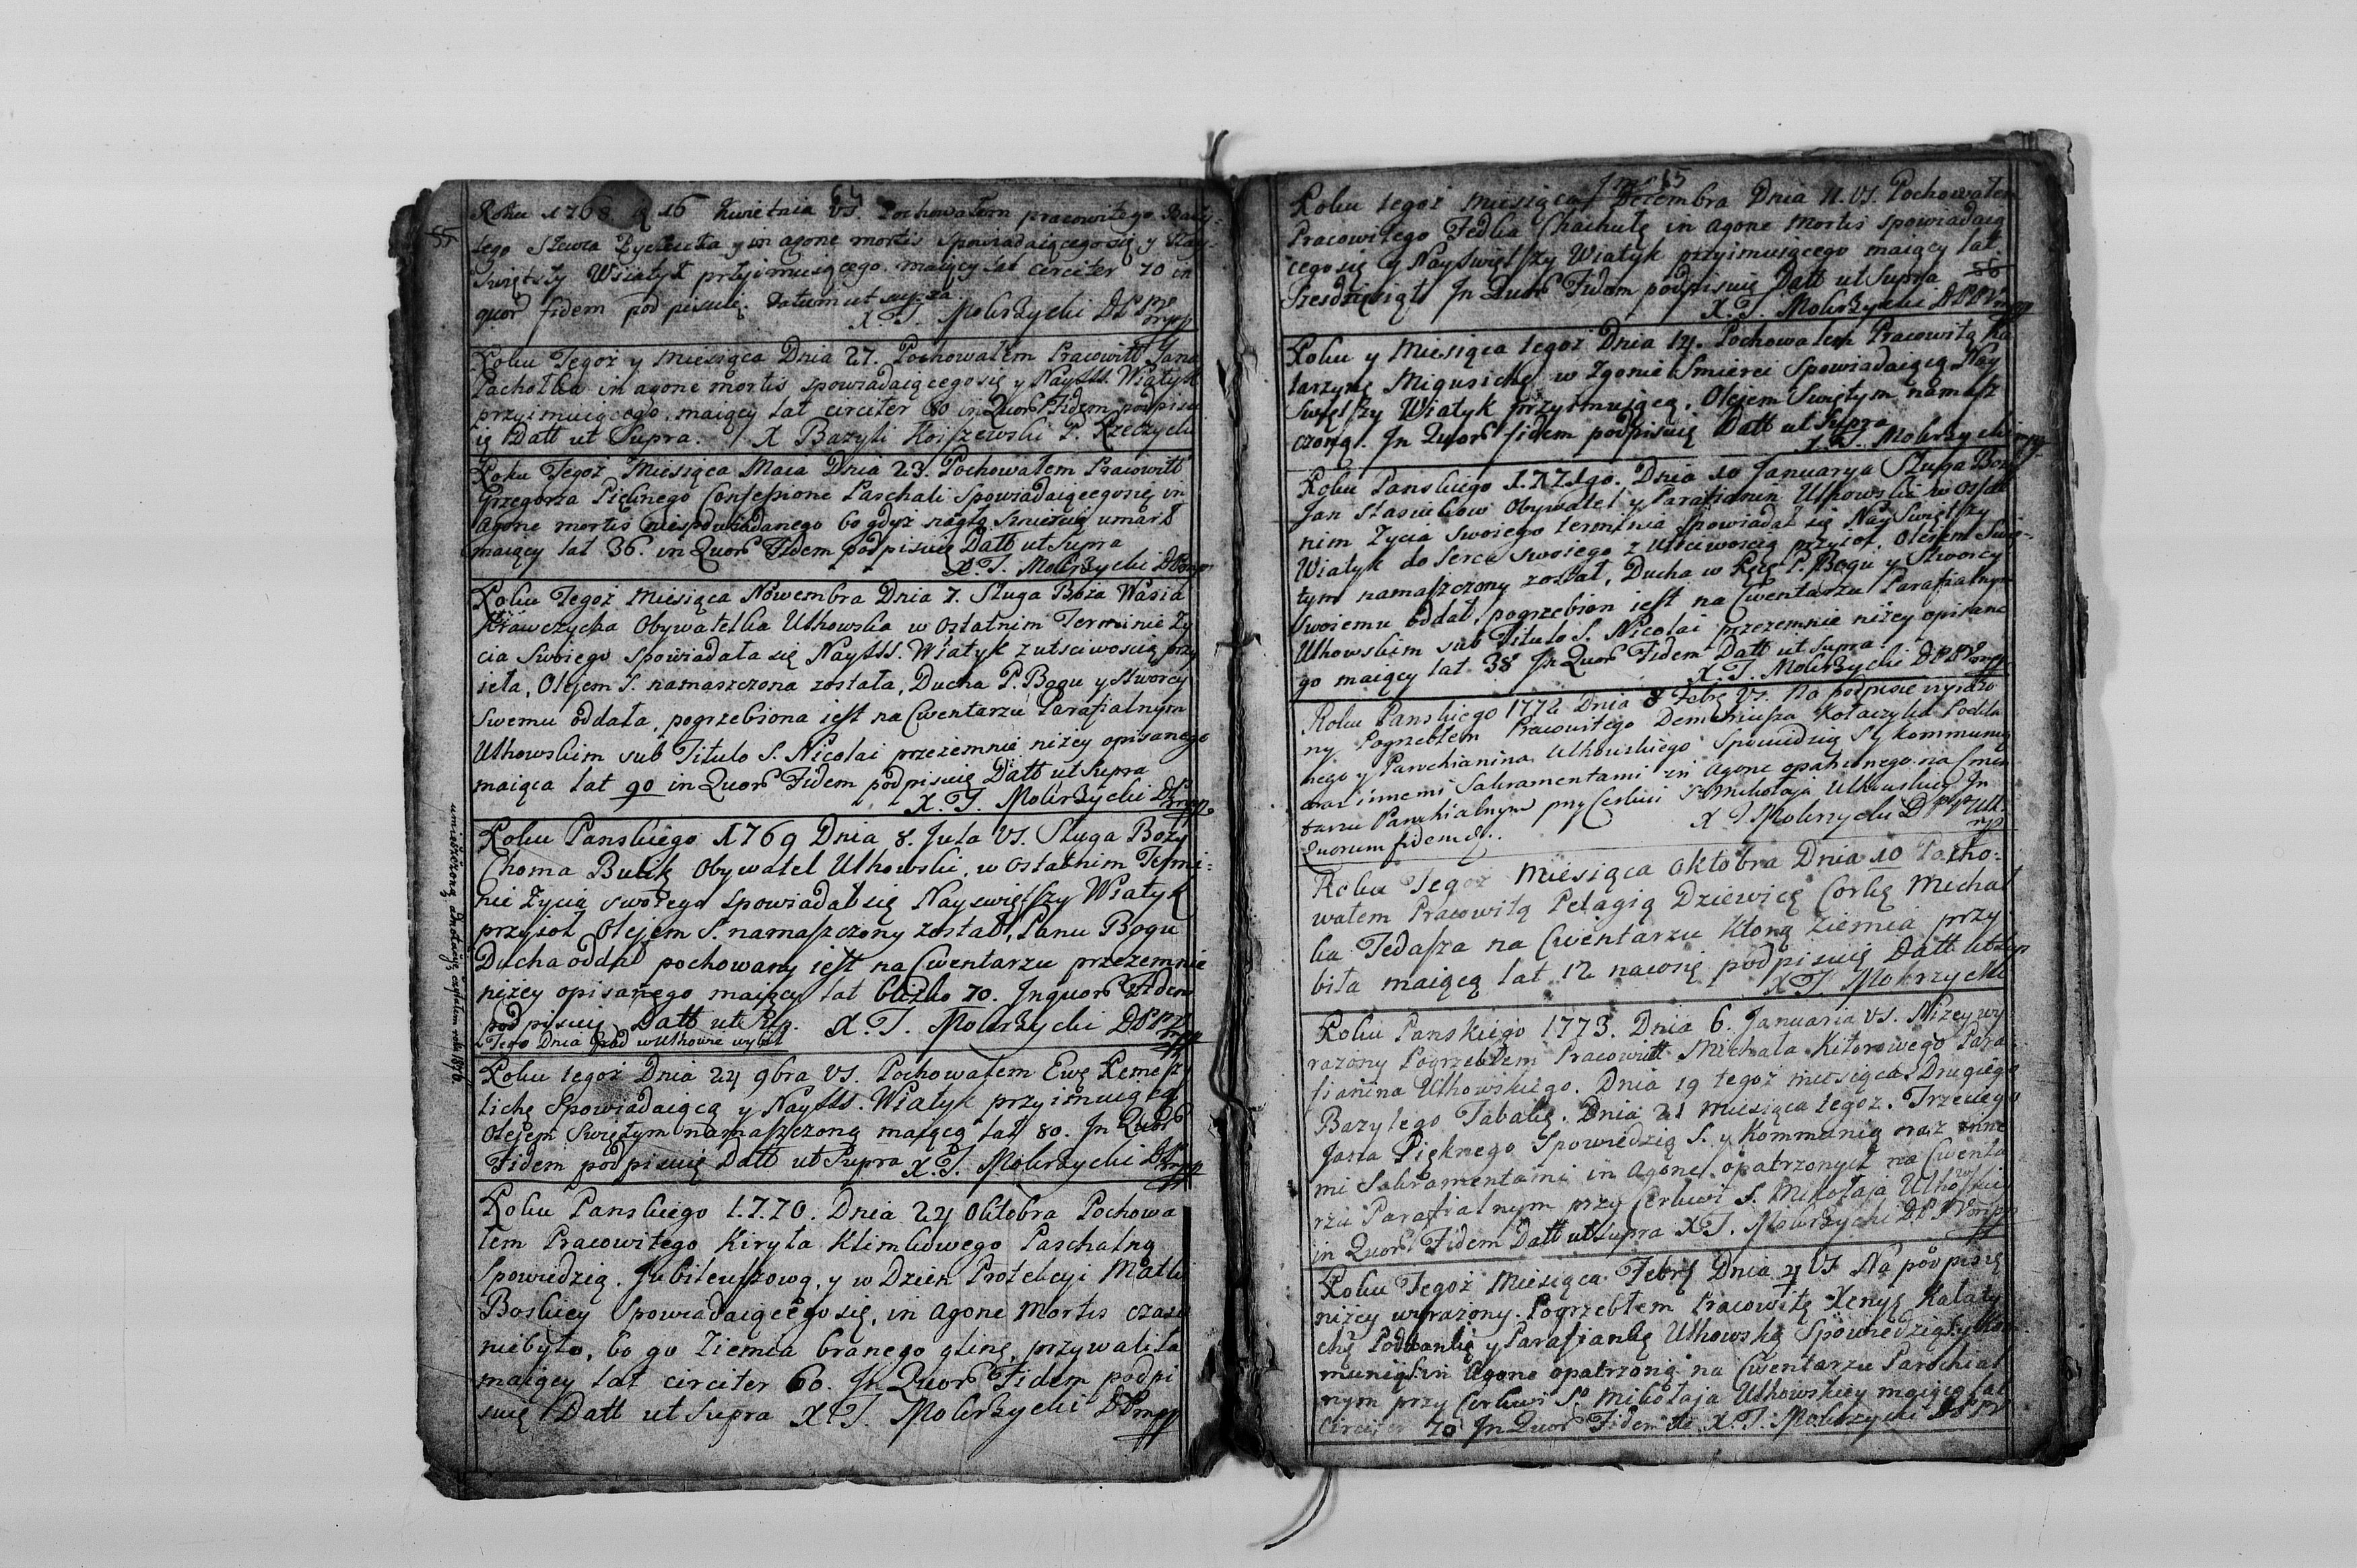 64
55
Roku 1768 16 Kwietnia VS. Pochowałem pracowitego Bazy-
lego Szewca y in agone mortis spowiadaiącego się y Nay-
Swiętszy Wiatyk przyimuiącego. maiący lat circiter 70 in
quor fidem podpisuię. Datum ut supra.
X. T. Mokrzycki DPW mpp
Roku Tegoż y Miesiąca Dnia 27. Pochowałem Pracowitt Jana
Pachołka in agone mortis spowiadaiącego się y NaySSS. Wiatyk
przyimuiącego. maiący lat circiter 80 in Quor Fidem podpisu
ię Datt ut Supra. X Bazyli Koiszewski P. Rzeczycki
Roku Tegoż Miesiąca Maia Dnia 23. Pochowałem Pracowitt
Grzegorza Pięknego Confessione Paschali Spowiadaiącego się in
agone mortis niespowiadanego bo gdyż nagłą smiercią umarł
maiący lat 36. in Quor Fidem podpisuię Datt ut Supra
X. T. Mokrzycki DP mpp
Roku Tegoż Miesiąca Nowembra Dnia 7. Sługa Boża Wasia
Krawczycha Obywatelka Uhowska w Ostatnim Terminie Ży
cia Swoiego spowiadała się NaySSS. Wiatyk z utsciwoscią przy
ieła, Olejem S. namaszczona została, Ducha P. Bogu y Stworcy
Swemu oddała, pogrzebiona iest na Cwentarzu Parafialnym
Uhowskim sub Titulo S. Nicolai przezemnie niżey opisanego
maiąca lat 90 in Quor Fidem podpisuię Datt ut Supra
X. T. Mokrzycki DP mpp.
Roku Panskiego 1769 Dnia 8. Jula VS. Sługa Boży
Choma Bulik Obywatel Uhowski, w ostatnim Termi-
nie Życia swoiego spowiadał się Nayswiętszy Wiatyk
przyioł Olejem S. namaszczony został, Panu Bogu
Ducha oddał pochowany iest na Cwentarzu przezemnie
niżey opisanego maiący lat blizko 70. In quor Fidem
podpisuię Datt ut Sup. X. T. Mokrzycki DPW mpp
Tego Dnia grad w Uhowie wybił
Roku tegoż Dnia 24 9bra VS. Pochowałem Ewę Remesz
lichę Spowiadaiącą y NaySSS. Wiatyk przyimuiącą
Olejem Swiętym namaszczoną maiącą lat 80. In Quor
Fidem podpisuię Datt ut Supra X. T. Mokrzycki DP mpp
Roku Panskiego 1.7.70. Dnia 24 Oktobra Pochowa
łem Pracowitego Kiryła Klimkowego Paschalną
Spowiedzią. Jubileuszową. y w Dzien Protekcyi Matki
Boskiey Spowiadaiącego się, in agone Mortis czasu
niebyło, bo go Ziemia branego glinę, przywaliła
maiący lat circiter 60. In Quor Fidem podpi
suię Datt ut Supra X. T. Mokrzycki DP mpp
65
Roku tegoż Miesiąca Decembra Dnia 11. VS. Pochowałem
Pracowitego Fedka Chachułę in agone Mortis spowiadaią
cego się y NaySwiętszy Wiatyk przyimuiącego maiący lat
In Quor Fidem podpisuię Datt ut Supra 56
X. T. Mokrzycki DPW mpp
Roku y Miesiąca tegoż Dnia 14. Pochowałem Pracowitą Ka
tarzynę Migusichę w Zgonie Smierci Spowiadaiącą Nay
Swiętszy Wiatyk przyimuiącą. Olejem Swiętym namasz
czoną. In Quor fidem podpisuię Datt ut Supra
X. T. Mokrzycki mpp
Roku Panskiego Dnia 10 Januarya Sługa Boży
Jan Obywatel y Parafianin Uhowski w Ostat
nim Życia Swoiego terminie Spowiadał się NaySwiętszy
Wiatyk do Serca swoiego z Utsciwoscią przyioł. Olejem Swię-
tym namaszczony został, Ducha w Ręce P. Bogu y Stworcy
Swoiemu oddał, pogrzebion iest na Cwentarzu Parafialnym
Uhowskim sub Titulo S. Nicolai przezemnie niżey opisane
go maiący lat 38 In Quor Fidem Datt ut Supra
X. T. Mokrzycki DPW mpp
Roku Panskiego 1772 Dnia 8 Febr VS. Na podpisie wyrażo
ny Pogrzebłem Pracowitego Demeniusza Kołaczyka Podda
nego y Parochianina Uhowskiego Spowiedzią S. y Kommunią
oraz innemi Sakramentami in Agone opatrzonego na Cmen
tarzu Parochialnym przy Cerkwi S. Mikołaja Uhowskiey In
Quorum fidem X T Mokrzycki
Roku Tegoż Miesiąca Oktobra Dnia 10 Pocho-
wałem Pracowitą Pelagią Dziewicę Corkę Michał
ka Fedasza na Cwentarzu Ktorą Ziemia przy
biła maiącą lat 12 podpisuię Datt ut Sup
X T. Mokrzycki
Roku Panskiego 1773. Dnia 6. Januaria VS. Niżey wy
rażony Pogrzebłem Pracowitt Michała Kitorowego Para
fianina Uhowskiego. Dnia 19 tegoż miesiąca Drugiego
Bazylego Tabalę. Dnia 21 Miesiąca tegoż. Trzeciego
Jana Pięknego Spowiedzią S. y Kommunią oraz inne
mi Sakramentami in Agone opatrzonych na Cwenta
rzu Parafialnym przy Cerkwi S. Mikołaja Uhowskiey
in Quor Fidem Datt ut Supra X T. Mokrzycki DPW mpp
Roku Tegoż Miesiąca Febr Dnia 4 VS Na podpisie
niżey wyrażony Pogrzebłem Pracowitą Xenyę Kałaty
chę Poddankę y Parafiankę Uhowską Spowiedzią S. y Kom
munią in Agone opatrzoną na Cwentarzu Parochial
nym przy Cerkwi S. Mikołaja Uhowskiey maiącą lat
Circiter 70 In Quor Fidem X. T. Mokrzycki